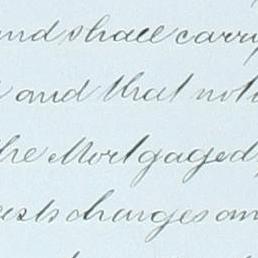 and shall carry
and that not
the Mortgaged
charges an